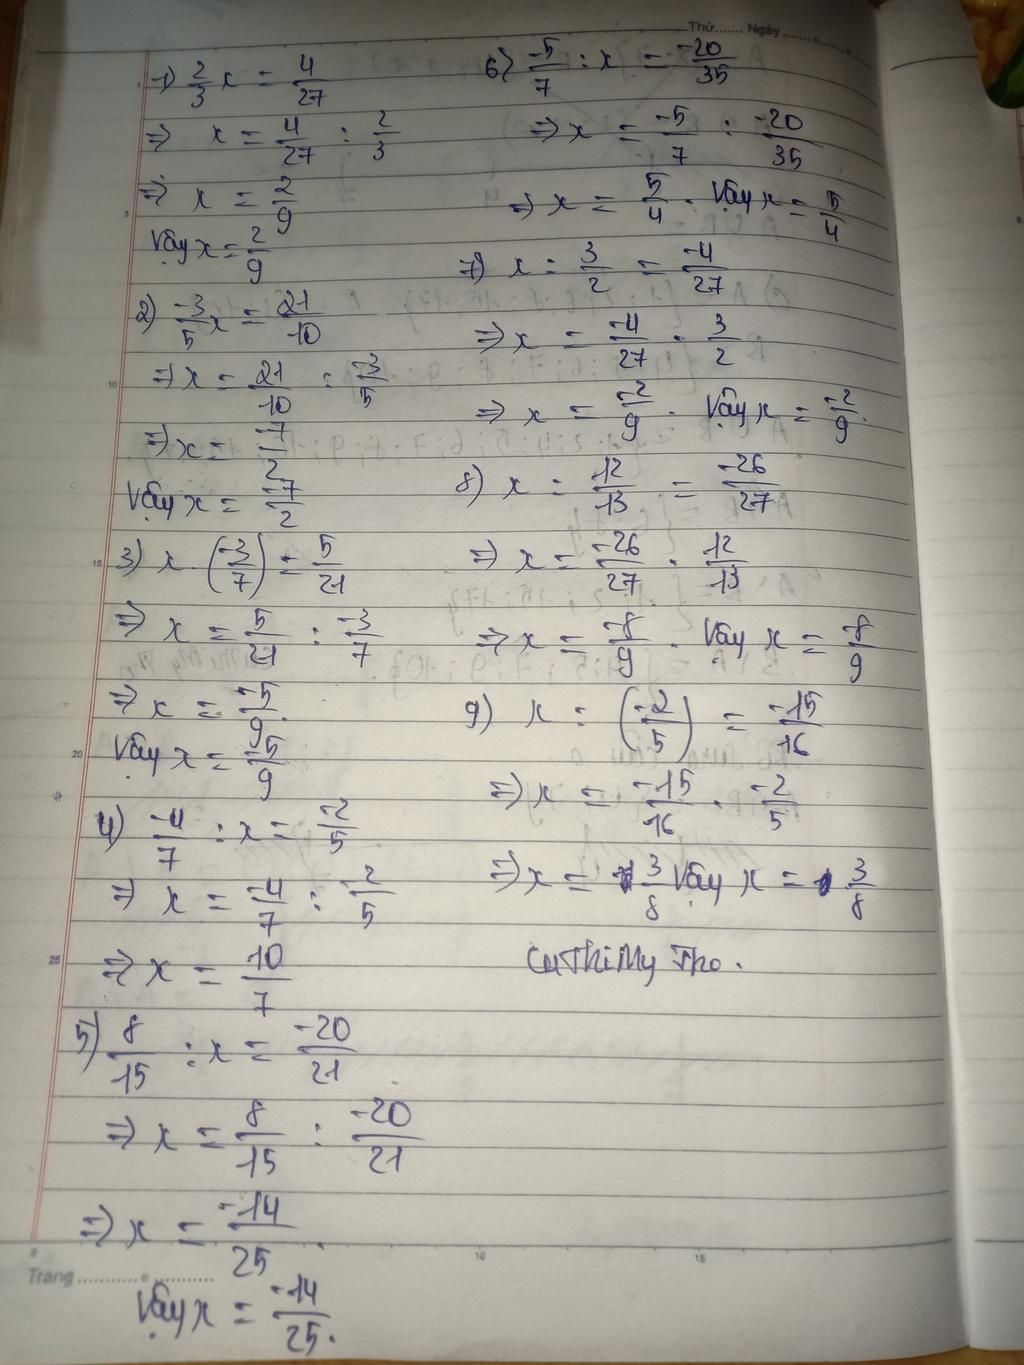 Thứ....... Ngày.............
1) 2/3 x = 4/27
=> x = 4/27 : 2/3
=> x = 2/9
Vậy x = 2/9
2) -3/5 x = 21/10
=> x = 21/10 : -3/5
=> x = -7/2
Vậy x = -7/2
3) x . (-3/7) = 5/21
=> x = 5/21 : -3/7
=> x = -5/9.
Vậy x = -5/9
4) -4/7 : x = -2/5
=> x = -4/7 : -2/5
=> x = 10/7
5) 8/15 : x = -20/21
=> x = 8/15 : -20/21
=> x = -14/25.
Vậy x = -14/25.
6) -5/7 : x = -20/35
=> x = -5/7 : -20/35
=> x = 5/4. Vậy x = 5/4
7) x : 3/2 = -4/27
=> x = -4/27 . 3/2
=> x = -2/9. Vậy x = -2/9.
8) x : 12/13 = -26/27
=> x = -26/27 . 12/13
=> x = -8/9. Vậy x = -8/9
9) x : (-2/5) = -15/16
=> x = -15/16 . -2/5
=> x = 3/8 Vậy x = 3/8
Trang
5
10
15
20
25
0
10
15